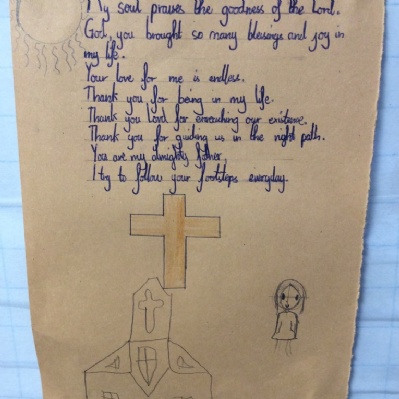 My soul praises the goodness of the Lord.
God, you brought so many blessings and joy in
my life.
Your love for me is endless.
Thank you for being in my life.
Thank you Lord for enreaching our existence.
Thank you for guiding us in the right path.
You are my almighty father.
I try to follow your footsteps everyday.